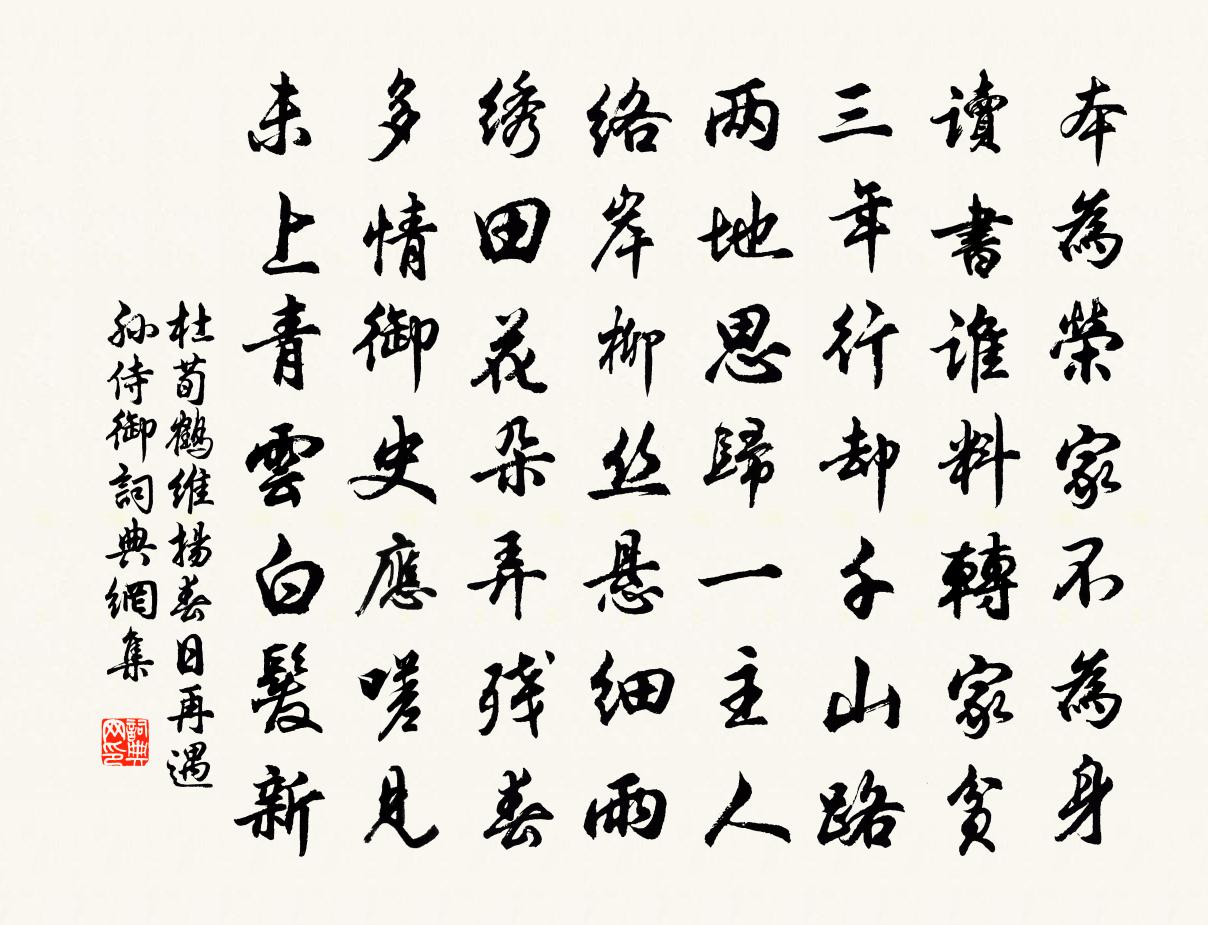 本為榮家不為身
讀書誰料轉家貧
三年行却千山路
两地思歸一主人
絡岸柳丝悬細雨
绣田花朵弄残春
多情御史應嗟見
未上青雲白髮新
杜荀鶴維揚春日再遇
孙侍御詞典網集
詞典
网印